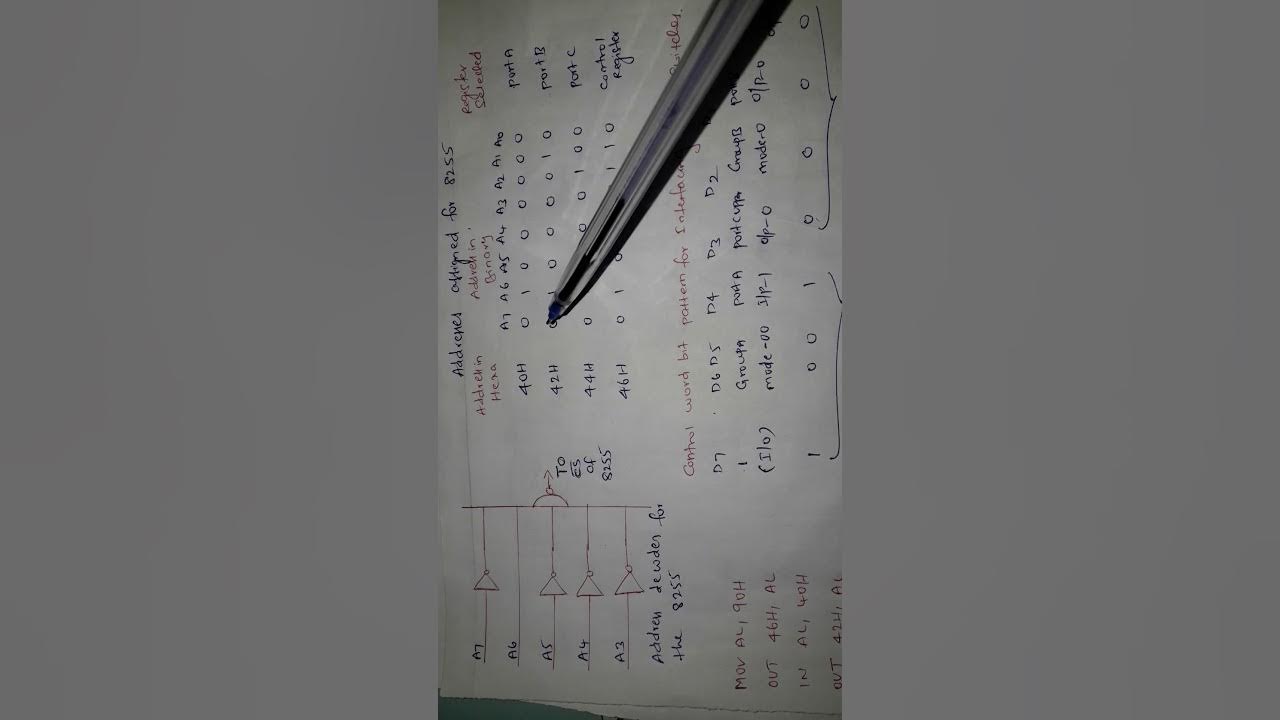 Addresses assigned for 8255
Address in Hexa
Address in Binary
Register Selected
A7 A6 A5 A4 A3 A2 A1 A0
40H 0 1 0 0 0 0 0 0 port A
42H 1 0 0 0 0 1 0 port B
44H 0 0 0 1 0 0 port C
46H 0 1 0 1 1 0 Control Register
A7
A6
A5
A4
A3
TO
CS
of
8255
Address decoder for
the 8255
Control word bit pattern for Interfacing switches.
D7 D6 D5 D4 D3 D2
1 Group A port A port C upper Group B
(I/O) mode-00 I/P-1 O/P-0 mode-0 O/P-0
1 0 0 1 0 0 0 0
MOV AL, 90H
OUT 46H, AL
IN AL, 40H
OUT 42H, AL